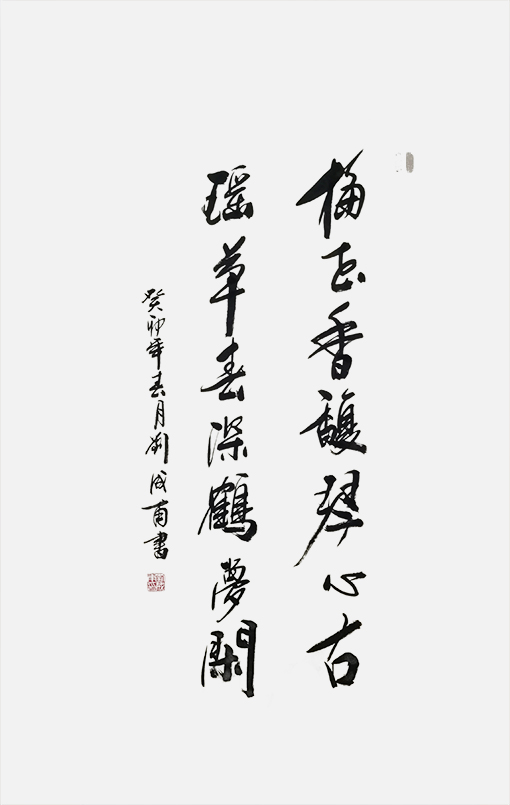 梅花香馥琴心古
瑶草春深鶴夢閑
癸卯年春月刘成甫書